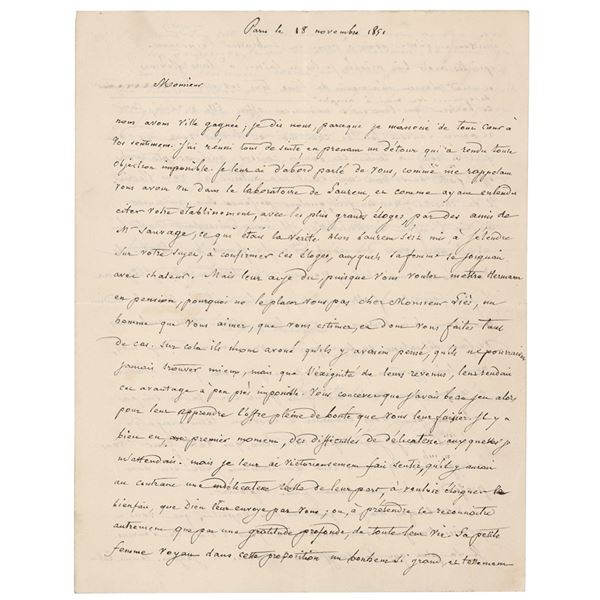 Paris le 18 novembre 1851
Monsieur
nous avons ville gagnée; je dis nous, parceque je m'associe de tout cœur à
vos sentiments. J'ai réussi tout de suite en prenant un détour qui a rendu toute
objection impossible. Je leur ai d'abord parlé de vous, comme me rappelant
vous avoir vu dans le laboratoire de Laurent, et comme ayant entendu
citer votre établissement, avec les plus grands éloges, par des amis de
Mr Sauvage, ce qui était la vérité. Alors Laurent s'est mis à s'étendre
sur votre sujet, à confirmer ces éloges, auxquels sa femme se joignait
avec chaleur. Mais leur ai-je dit, puisque vous voulez mettre Hermann
en pension, pourquoi ne le placez vous pas chez Monsieur Liès, un
homme que vous aimez, que vous estimez, et dont vous faites tant
de cas. Sur cela ils m'ont avoué qu'ils y avaient pensé, qu'ils ne pourraient
jamais trouver mieux, mais que l'exiguité de leurs revenus, leur rendait
cet avantage à peu près impossible. Vous concevez que j'avais beau jeu alors
pour leur apprendre l'offre pleine de bonté que vous leur faisiez. Il y a
bien eu, au premier moment, des difficultés de délicatesse auxquelles je
m'attendais. mais je leur ai victorieusement fait sentir, qu'il y aurait
au contraire une indélicatesse réelle de leur part, à vouloir éloigner le
bienfait, que Dieu leur envoye par vous; ou, à prétendre le reconnaître
autrement que par une gratitude profonde, de toute leur vie. Sa petite
femme voyait dans cette proposition un bonheur si grand, et tellement